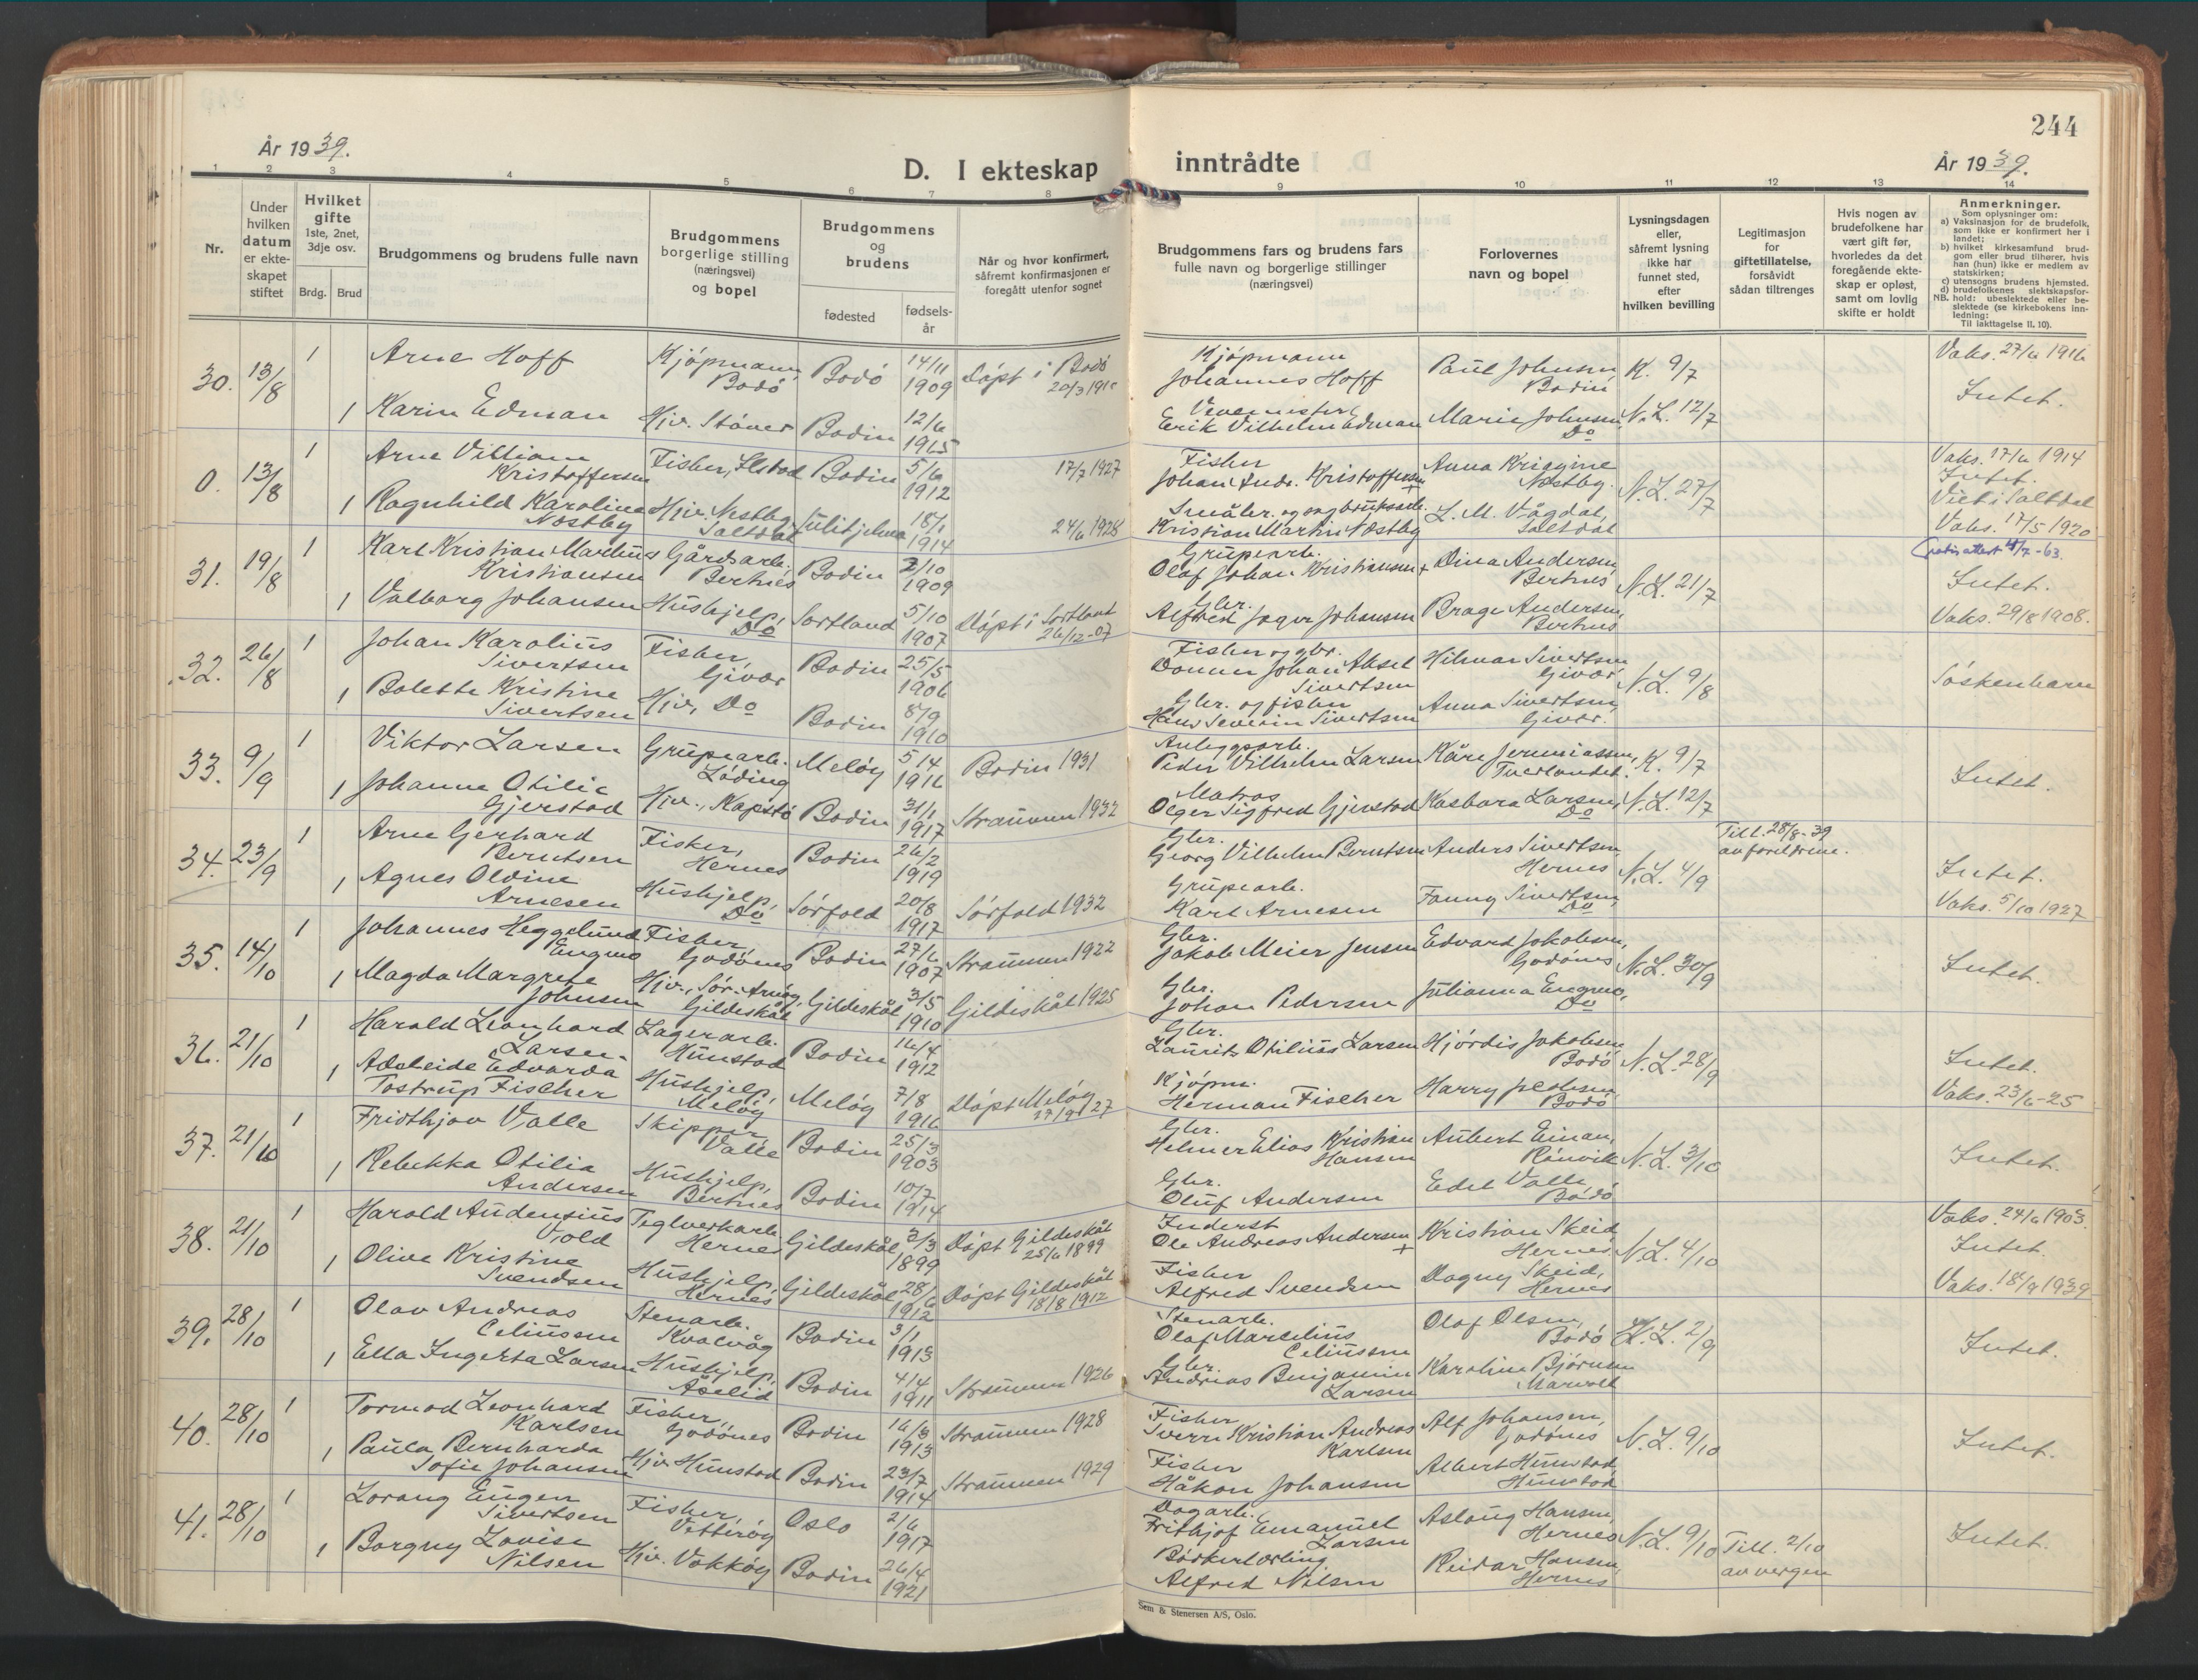 244
År 1939.
D. I ekteskap inntrådte
År 1939.
1 2 3 4 5 6 7 8 9 10 11 12 13 14
Nr.
Under hvilken datum er ekte-skapet stiftet
Hvilket gifte 1ste, 2net, 3dje osv.
Brdg. Brud
Brudgommens og brudens fulle navn
Brudgommens borgerlige stilling (næringsvei) og bopel
Brudgommens og brudens
fødested
fødsels-år
Når og hvor konfirmert, såfremt konfirmasjonen er foregått utenfor sognet
Brudgommens fars og brudens fars fulle navn og borgerlige stillinger (næringsvei)
Forlovernes navn og bopel
Lysningsdagen eller, såfremt lysning ikke har funnet sted, efter hvilken bevilling
Legitimasjon for giftetillatelse, forsåvidt sådan tiltrenges
Hvis nogen av brudefolkene har vært gift før, hvorledes da det foregående ekte-skap er opløst, samt om lovlig skifte er holdt
Anmerkninger.
Som oplysninger om:
a) Vaksinasjon for de brudefolk, som ikke er konfirmert her i landet;
b) hvilket kirkesamfund brud-gom eller brud tilhører, hvis han (hun) ikke er medlem av statskirken;
c) utensogns brudens hjemsted.
d) brudefolkenes slektskapsfor-hold: ubeslektede eller be-slektede (se kirkebokens inn-ledning:
NB. Til iakttagelse II, 10).
30. 13/8 1 Arne Hoff Kjøpmann, Bodø Bodø 14/11 1909 Døpt i Bodø Kjøpmann Johannes Hoff Paul Johnsen, Bodin K. 9/7 Vaks. 27/6 1916
1 Karin Edman Hjv. Støver Bodin 12/6 1915 Erik Vilhelm Edman Marie Johnsen, Do N.L. 12/7 Intet.
0. 13/8 1 Arne Villiam Kristoffersen Fisker, Ilstad Bodin 5/6 1912 17/7 1927 Fisker Johan Andr. Kristoffersen + Anna Næstby. N.L. 27/7 Vaks. 17/6 1914 Intet.
1 Ragnhild Karoline Næstby Hjv. Nestby, Saltdal Sulitjelma 18/1 1914 24/6 1928 Kristian Martin Næstby L. M. Vågdal, Saltdal Viet i Saltdal Vaks. 17/5 1920
31. 19/8 1 Karl Kristian Martinus Kristiansen Gårdsarb., Bertnes Bodin 2/10 1909 Grupearb. Olaf Johan Kristiansen + Dina Andersen, Bertnes N.L. 21/7 4/7-63 Intet.
1 Valborg Johansen Hushjelp, Do Sortland 5/10 1907 Døpt i Sortland 26/12-07 Gbr. Alfred Jager Johansen Brage Andersen, Bertnes Vaks. 29/8 1908.
32. 26/8 1 Johan Karolius Sivertsen Fisker, Givær Bodin 25/5 1906 Fisker og gbr. Johan Aksel Sivertsen Hilmar Sivertsen Givær N.L. 9/8 Søskenbarn
1 Bolette Kristine Sivertsen Hjv, Do Bodin 8/9 1910 Gbr. og fisker Hans Severin Sivertsen Anna Sivertsen, Givær.
33. 9/9 1 Viktor Larsen Grupearb. Løding Meløy 5/4 1916 Bodin 1931 Anleggsarb. Peder Vilhelm Larsen Kåre Jeremiassen, Tverlandet. K. 9/7 Intet.
1 Johanne Otilie Gjerstad Hjv., Kapstø Bodin 31/1 1917 Straumen 1932 Matros Olger Sigfred Gjerstad Kasbara Larsen, Do N.L. 12/7
34. 23/9 1 Arne Gerhard Berntsen Fisker, Hernes Bodin 26/2 1919 Gbr. Georg Vilhelm Berntsen Anders Sivertsen, Hernes N.L. 4/9 Till. 28/8-39 av foreldrene. Intet.
1 Agnes Oldine Arnesen Hushjelp, Do Sørfold 20/8 1917 Sørfold 1932 Grupearb. Karl Arnesen Fanny Sivertsen, Do Vaks. 5/10 1927
35. 14/10 1 Johannes Heggelund Engmo Fisker, Godønes Bodin 27/6 1907 Straumen 1922 Gbr. Jakob Meier Jensen Edvard Jakobsen, Godønes N.L. 30/9 Intet.
1 Magda Margrete Johnsen Hjv., Sør-Arnøy, Gildeskål Gildeskål 3/5 1910 Gildeskål 1925 Gbr. Johan Pedersen Julianna Engmo, Do
36. 21/10 1 Harald Leonhard Larsen Lagerarb. Hunstad Bodin 16/4 1912 Gbr. Laurits Otilius Larsen Hjørdis Jakobsen, Bodø N.L. 28/9 Intet.
1 Adeleide Edvarda Tostrup Fischer Hushjelp, Meløy Meløy 7/8 1916 Døpt Meløy Kjøpm. Herman Fischer Harry Jakobsen, Bodø Vaks. 23/6-25
37. 21/10 1 Fridthjov Valle Skipper, Valle Bodin 25/3 1903 Gbr. Helmer Elias Kristian Hansen Aubert Einan, Rønvik N.L. 3/10 Intet.
1 Rebekka Otilia Andersen Hushjelp, Bertnes Bodin 10/7 1914 Gbr. Oluf Andersen Edel Valle, Bodø
38. 21/10 1 Harald Audensius Vold Teglverkarb. Hernes Gildeskål 3/3 1899 Døpt Gildeskål 25/6 1899 Inderst Ole Andreas Andersen + Kristian Skeid, Hernes N.L. 4/10 Vaks. 24/6 1903. Intet.
1 Olive Kristine Svendsen Hushjelp, Hernes Gildeskål 28/6 1912 Døpt Gildeskål 18/8 1912 Fisker Alfred Svendsen Dagny Skeid, Hernes Vaks. 18/9 1939
39. 28/10 1 Olav Andreas Celiussen Stenarb. Kvalvåg Bodin 3/1 1913 Stenarb. Olaf Marselius Celiussen Olaf Olsen, Bodø N.L. 2/9 Intet.
1 Ella Ingerta Larsen Hushjelp, Åselid Bodin 4/4 1911 Straumen 1926 Gbr. Andreas Benjamin Larsen Karoline Bjørnsen Marvoll
40. 28/10 1 Tormod Leonhard Karlsen Fisker, Godønes Bodin 16/3 1913 Straumen 1928 Fisker Kristian Andreas Karlsen Alf Johansen, Godønes N.L. 9/10 Intet.
1 Paula Bernharda Sofie Johansen Hjv Hunstad Bodin 23/7 1914 Straumen 1929 Fisker Håkon Johansen Albert Hunstad, Hunstad
41. 28/10 1 Lorang Eugen Sivertsen Fisker, Vetterøy Oslo 2/6 1917 Dagarb. Frithjof Emanuel Larsen Aslaug Hansen, Hernes N.L. 9/10 Till. 2/10 av vergen Intet.
1 Borgny Lovise Nilsen Hjv. Vokkøy Bodin 26/4 1921 Bøkkerlærling Alfred Nilsen Reidar Hansen, Hernes
Sem & Stenersen A/S, Oslo.